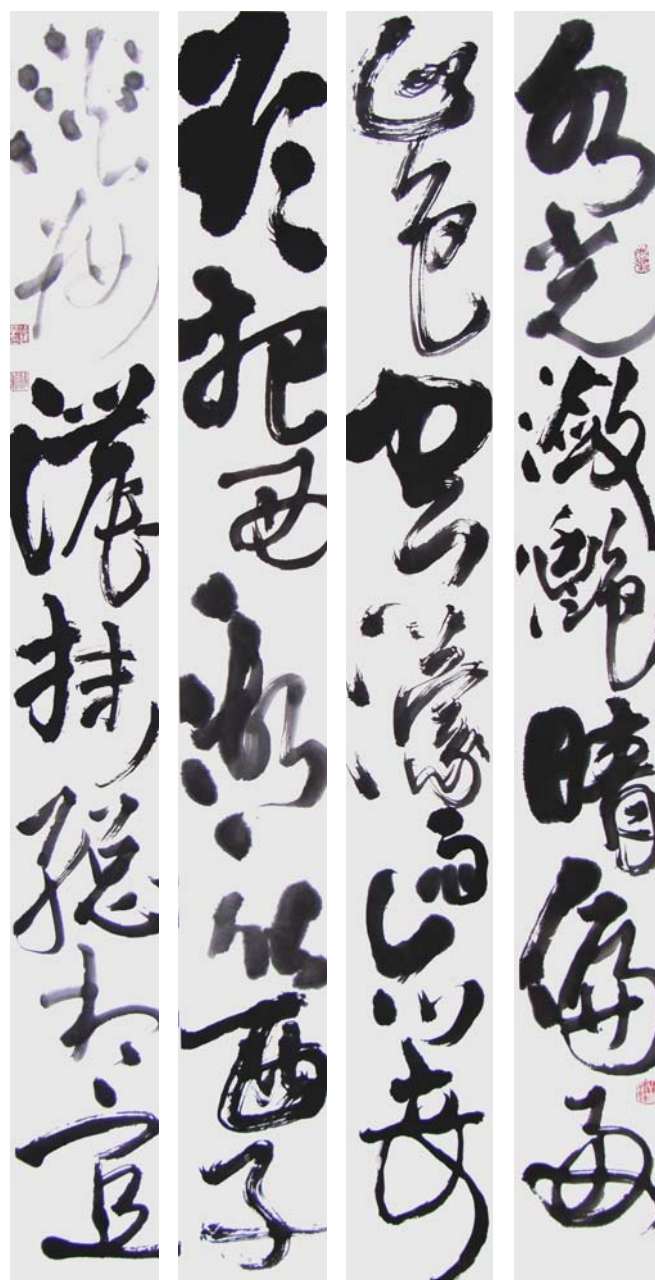 水光瀲灩晴偏好
山色空濛雨亦奇
欲把西湖比西子
淡妝濃抹總相宜